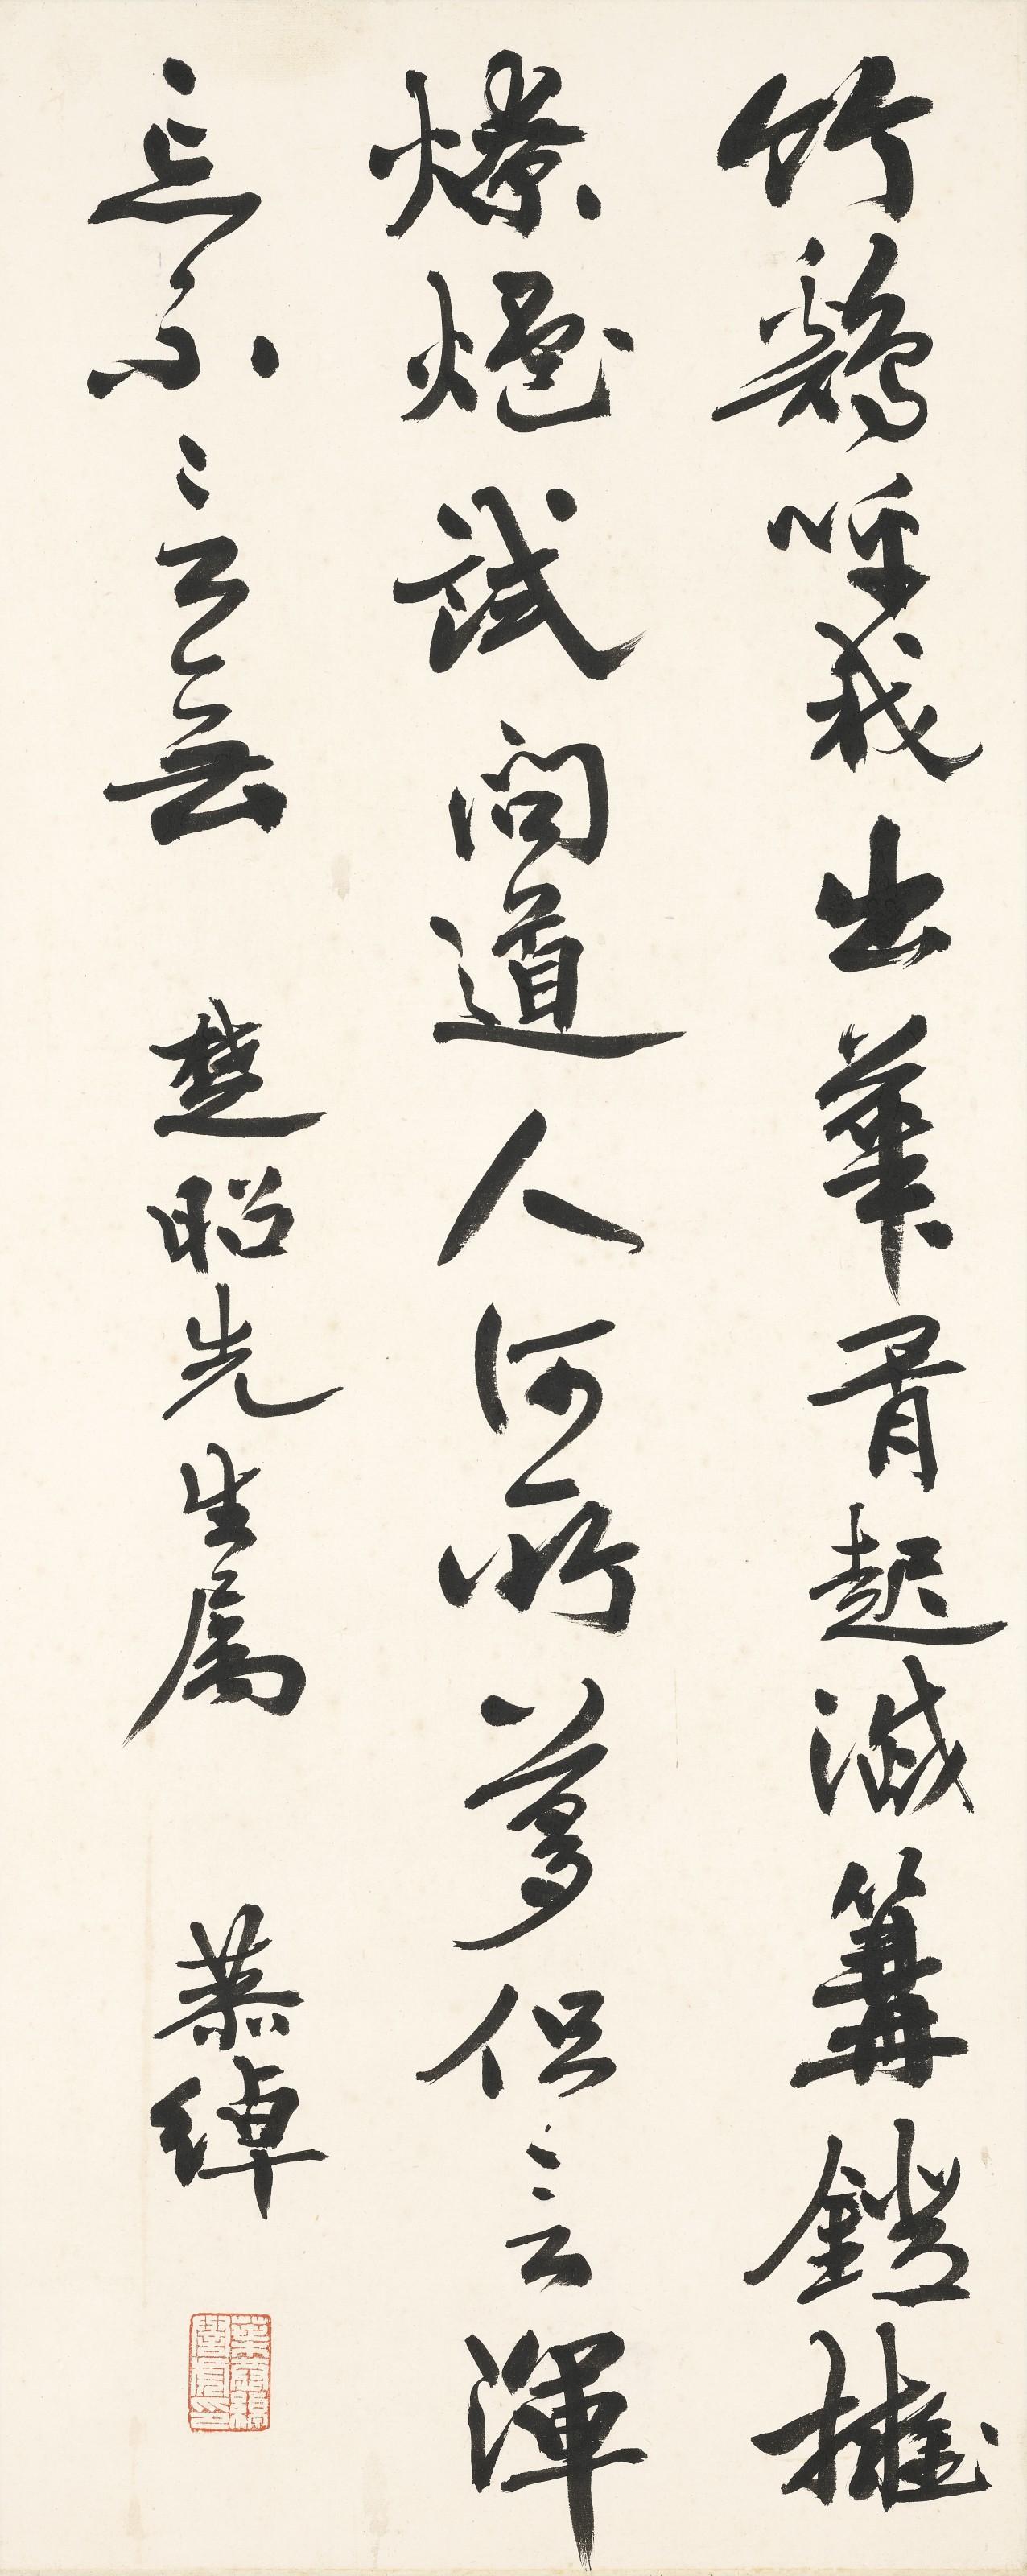 竹鷄呼我出華胥起滅篝鐙擁
燎爐試問道人何所夢但言渾
忘不言無 楚昭先生屬 恭綽
葉恭綽
譽虎印